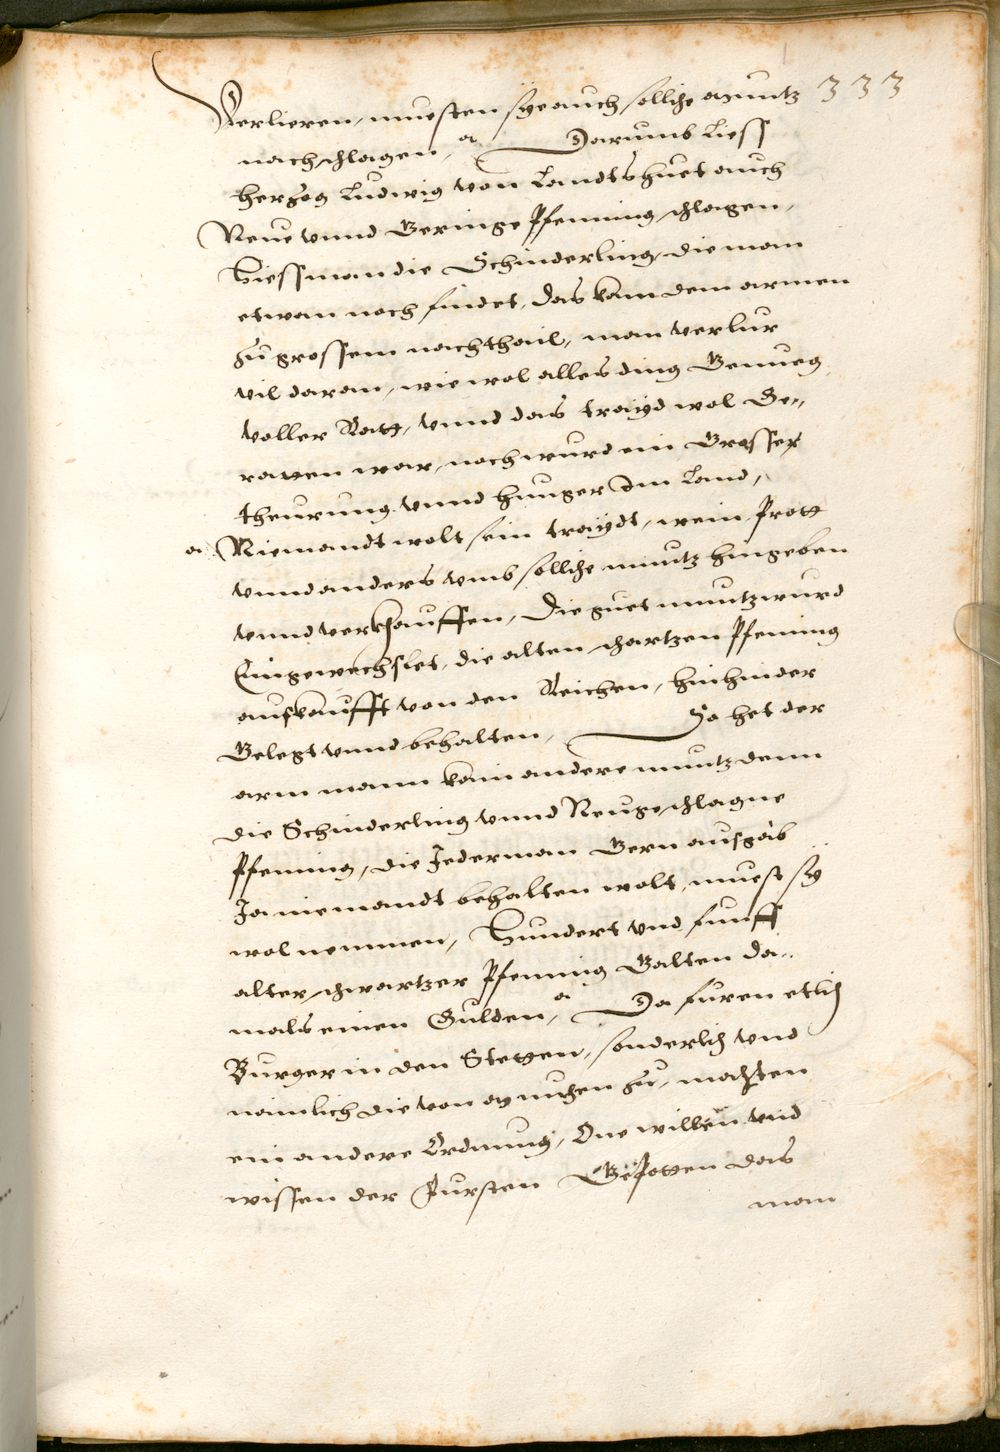 333
Verlieren, muesten sye auch solliche muntz
nachschlagen, Darumb liess
herzog Ludwig von Landtshuet auch
Neue vnnd Geringe Pfenning schlagen,
Hiess man die Schinderling, die man
etwan noch findet, das kam dem armen
zu grossem nachthail, man verlur
vil daran, wie wol alles ding Genueg
voller Ratt, vnnd das trayd wol Ge-,
ratten war, noch wurd ein Grosser
theurung vnnd hunger Im Land,
Niemandt wolt sein traydt, wein, Prott
vnnd anders vmb solliche muntz hingeben
vnnd verkhauffen, Die guet muntz wurd
Eingewechslet, die alten schwartzen Pfening
auskaufft von den Reichen, hinhinder
Gelegt vnnd behalten, Ja het der
arm mann kain andere muntz denn
die Schinderling vnnd Neugeschlagne
Pfening, die Jederman Gern ausgab
Ja niemandt behalten wolt, muest sy
wol nemmen, Hundert vnd funff
alter schwartzer Pfenning Galten da-,
mals einen Gulden, Da furen etlich
Burger in den Stetten, sonderlich vnd
naimlich die von munchen zu, machten
ein andere Ordnung, One willen vnd
wissen der Fursten Gepotten das
man